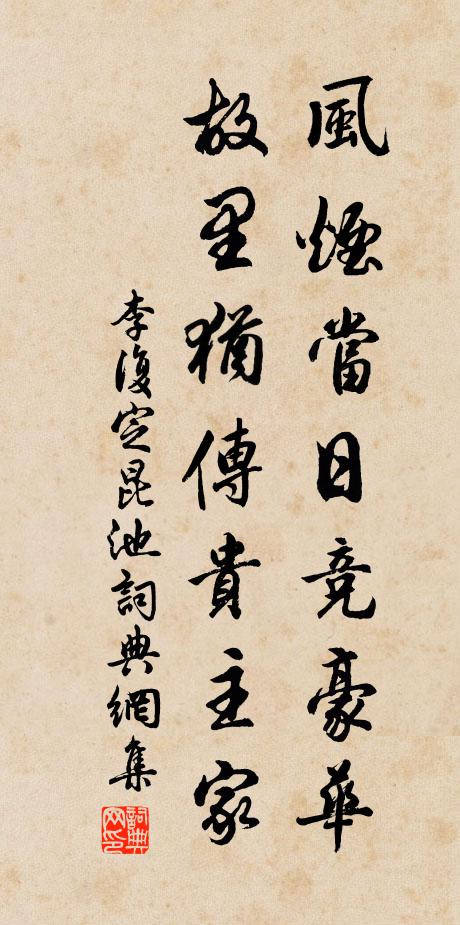 風煙當日競豪華
故里猶傳貴主家
李復定昆池詞典網集
詞典網印